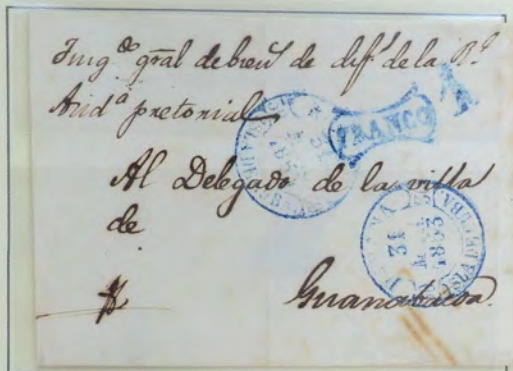 Juzgᵈᵒ gral de bienˢ de difᵗˢ de la Rˡ
Audª pretorial
FRANCO
Al Delegado de la villa
de
31
1853
Guanabacoa.